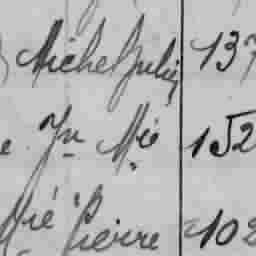 Michel Julien 137
e Jn Mie 152
Mie Pierre 102